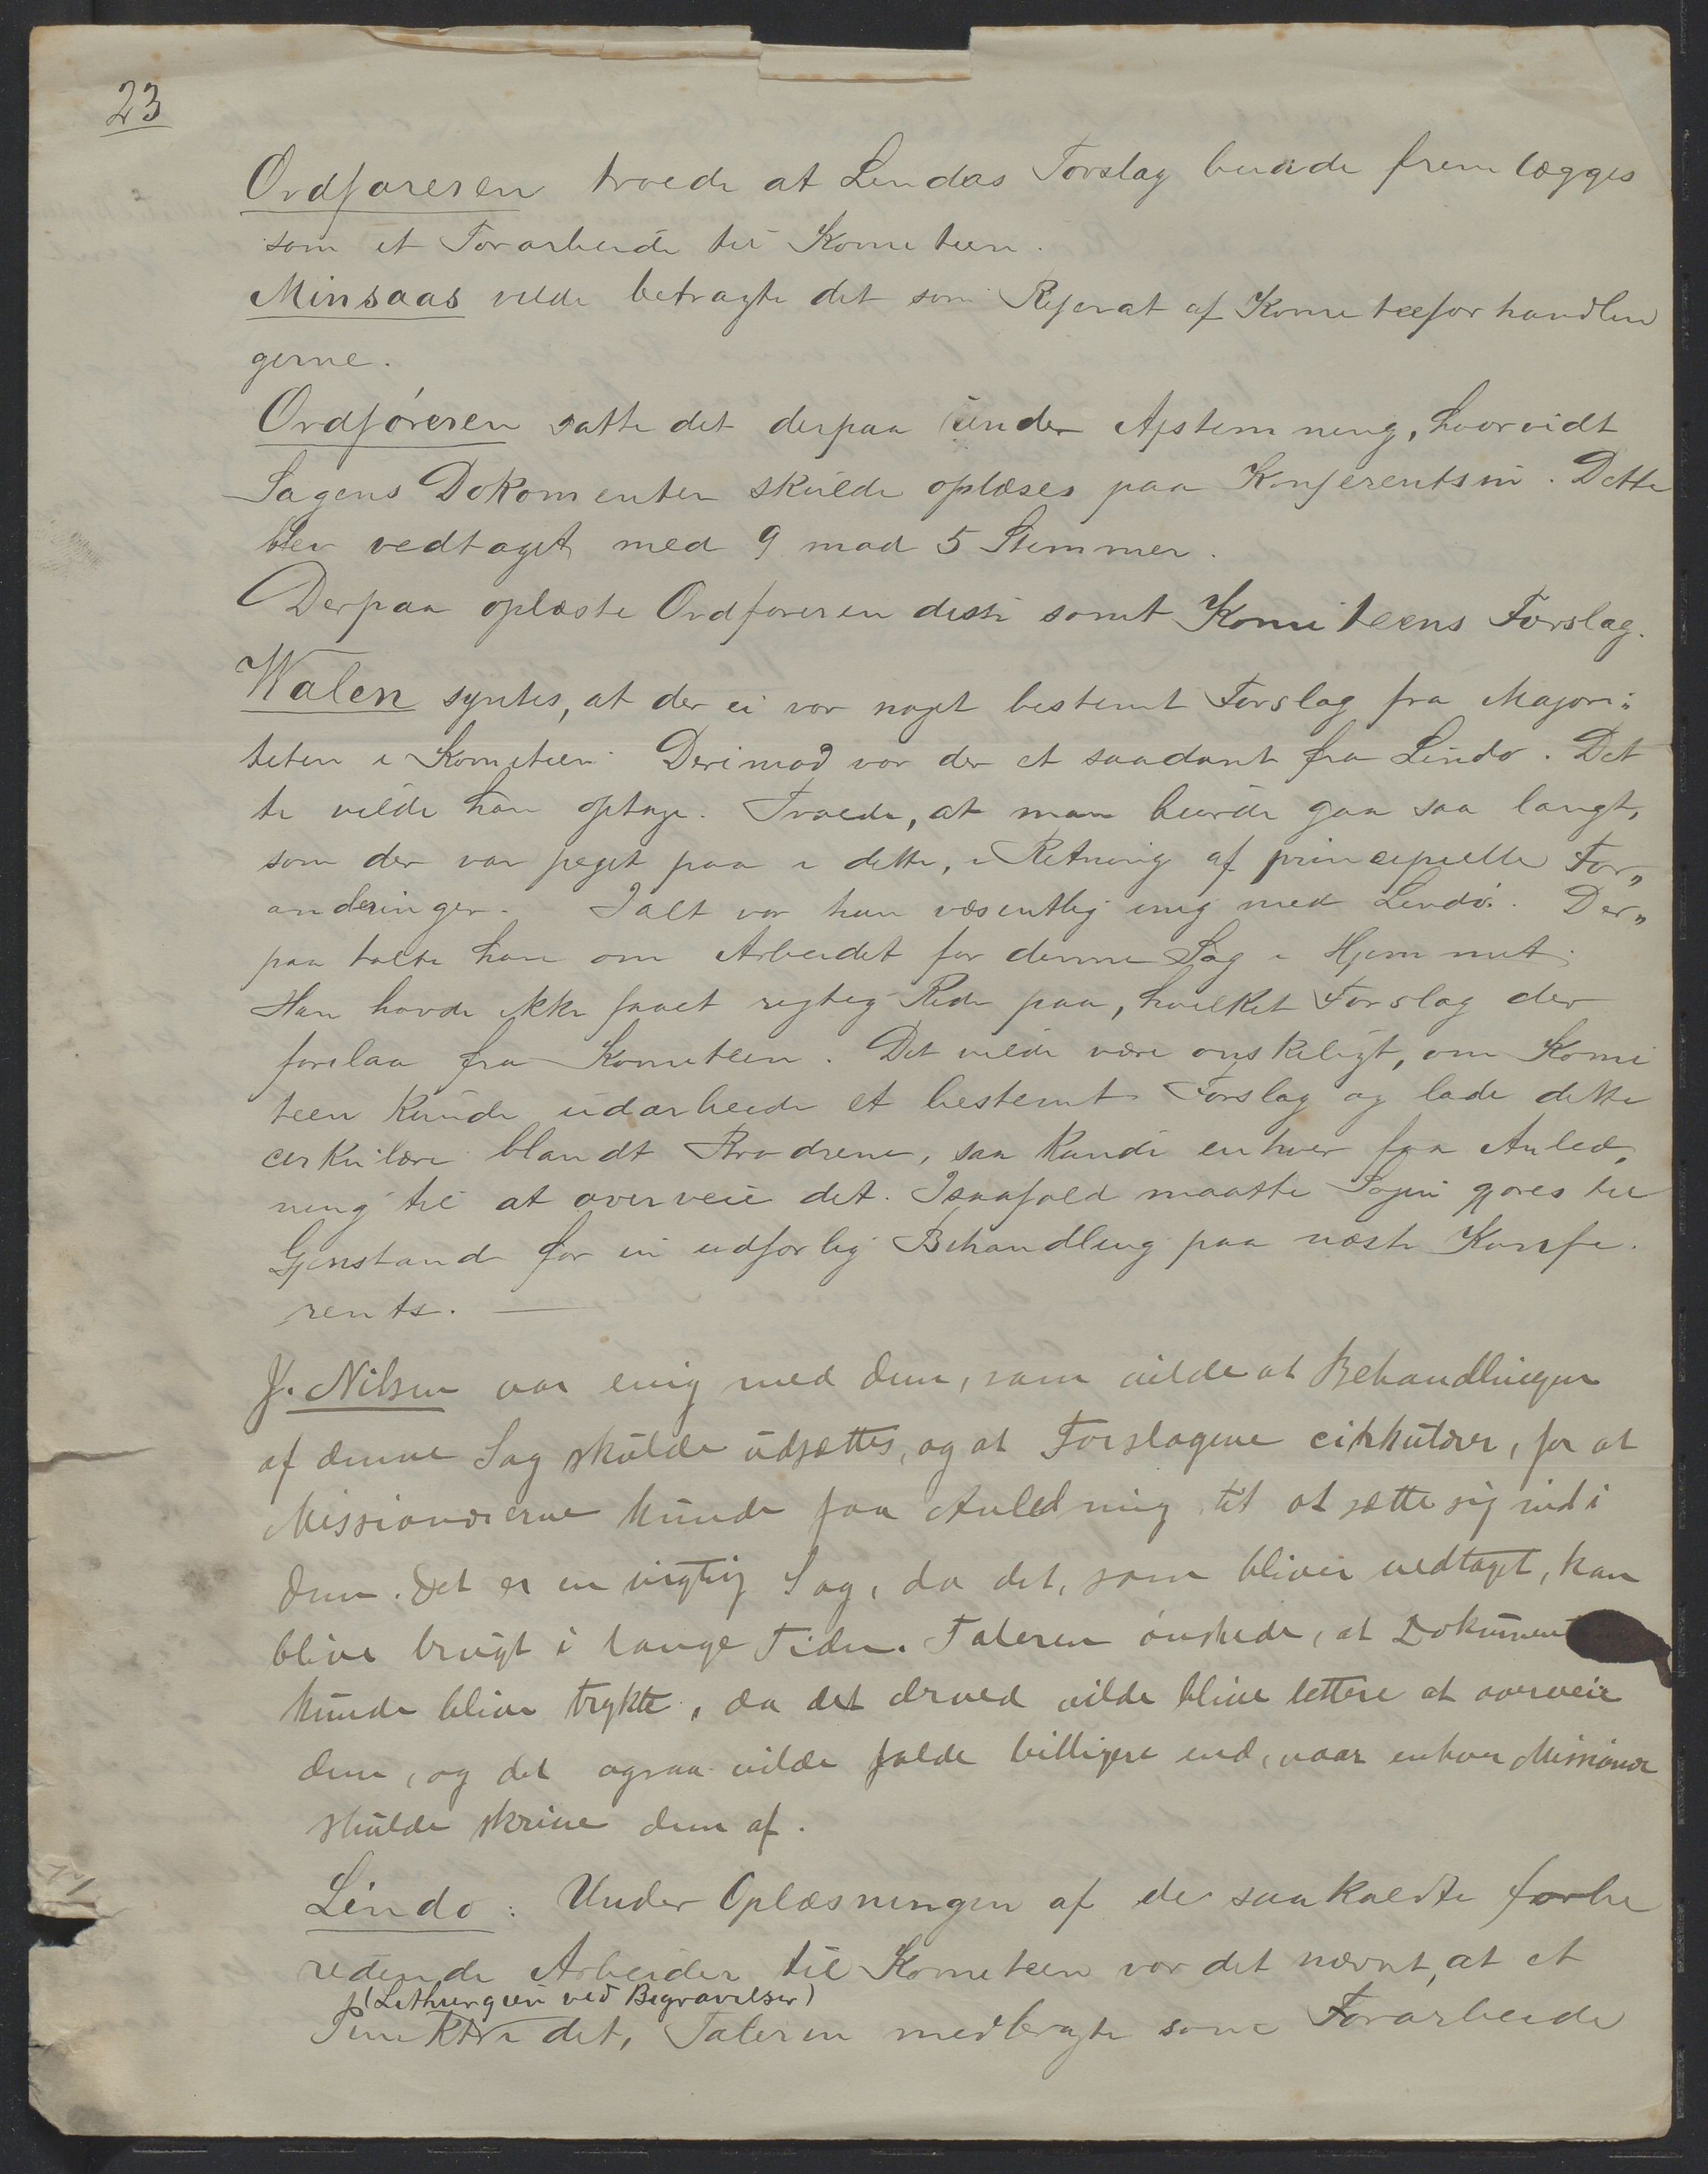 23
Ordføreren troede at Lindøs Forslag burde fremlægges
som et Forarbeide til Komiteen.
Minsaas vilde betragte det som Referat af Komiteeforhandlin
gerne.
Ordføreren satte det derpaa under Afstemning, hvorvidt
Sagens Dokomenter skulde oplæses paa Konferentsen. Dette
blev vedtaget med 9 mod 5 Stemmer.
Derpaa oplæste Ordføreren disse samt Komiteens Forslag.
Walen syntes, at der ei var noget bestemt Forslag fra Majori„
teten i Komiteen. Derimod var der et saadant fra Lindø. Det
te vilde han optage. Troede, at man burde gaa saa langt,
som der var peget paa i dette, i Retning af principielle For„
andringer. Ialt var han væsentlig enig med Lindø. Der„
paa talte han om Arbeidet for denne Sag i Hjemmet.
Han havde ikke faaet rigtig Rede paa, hvilket Forslag der
forelaa fra Komiteen. Det vilde være ønskeligt, om Komi
teen kunde udarbeide et bestemt Forslag og lade dette
cirkulære blandt Brødrene, saa kunde enhver faa Anled„
ning til at overveie det. Isaafald maatte Sagen gjøres til
Gjenstand for en udførlig Behandling paa næste Konfe„
rents. —
J. Nilsen var enig med dem, som vilde at Behandlingen
af denne Sag skulde udsættes, og at Forslagene cirkulærer, for at
Missionærerne kunde faa Anledning til at sætte sig ind i
dem. Det er en vigtig Sag, da det, som bliver vedtaget, kan
blive brugt i lange Tider. Taleren ønskede, at Dokument
kunde blive trykte, da det derved vilde blive lettere at overveie
dem, og det ogsaa vilde falde billigere end, naar enhver Missionær
skulde skrive dem af.
Lindø: Under Oplæsningen af de saakaldte forbe
redende Arbeider til Komiteen var det nævnt, at et
(Lithurgien ved Begravelser)
Punkt i det, Taleren medbragte som Forarbeide